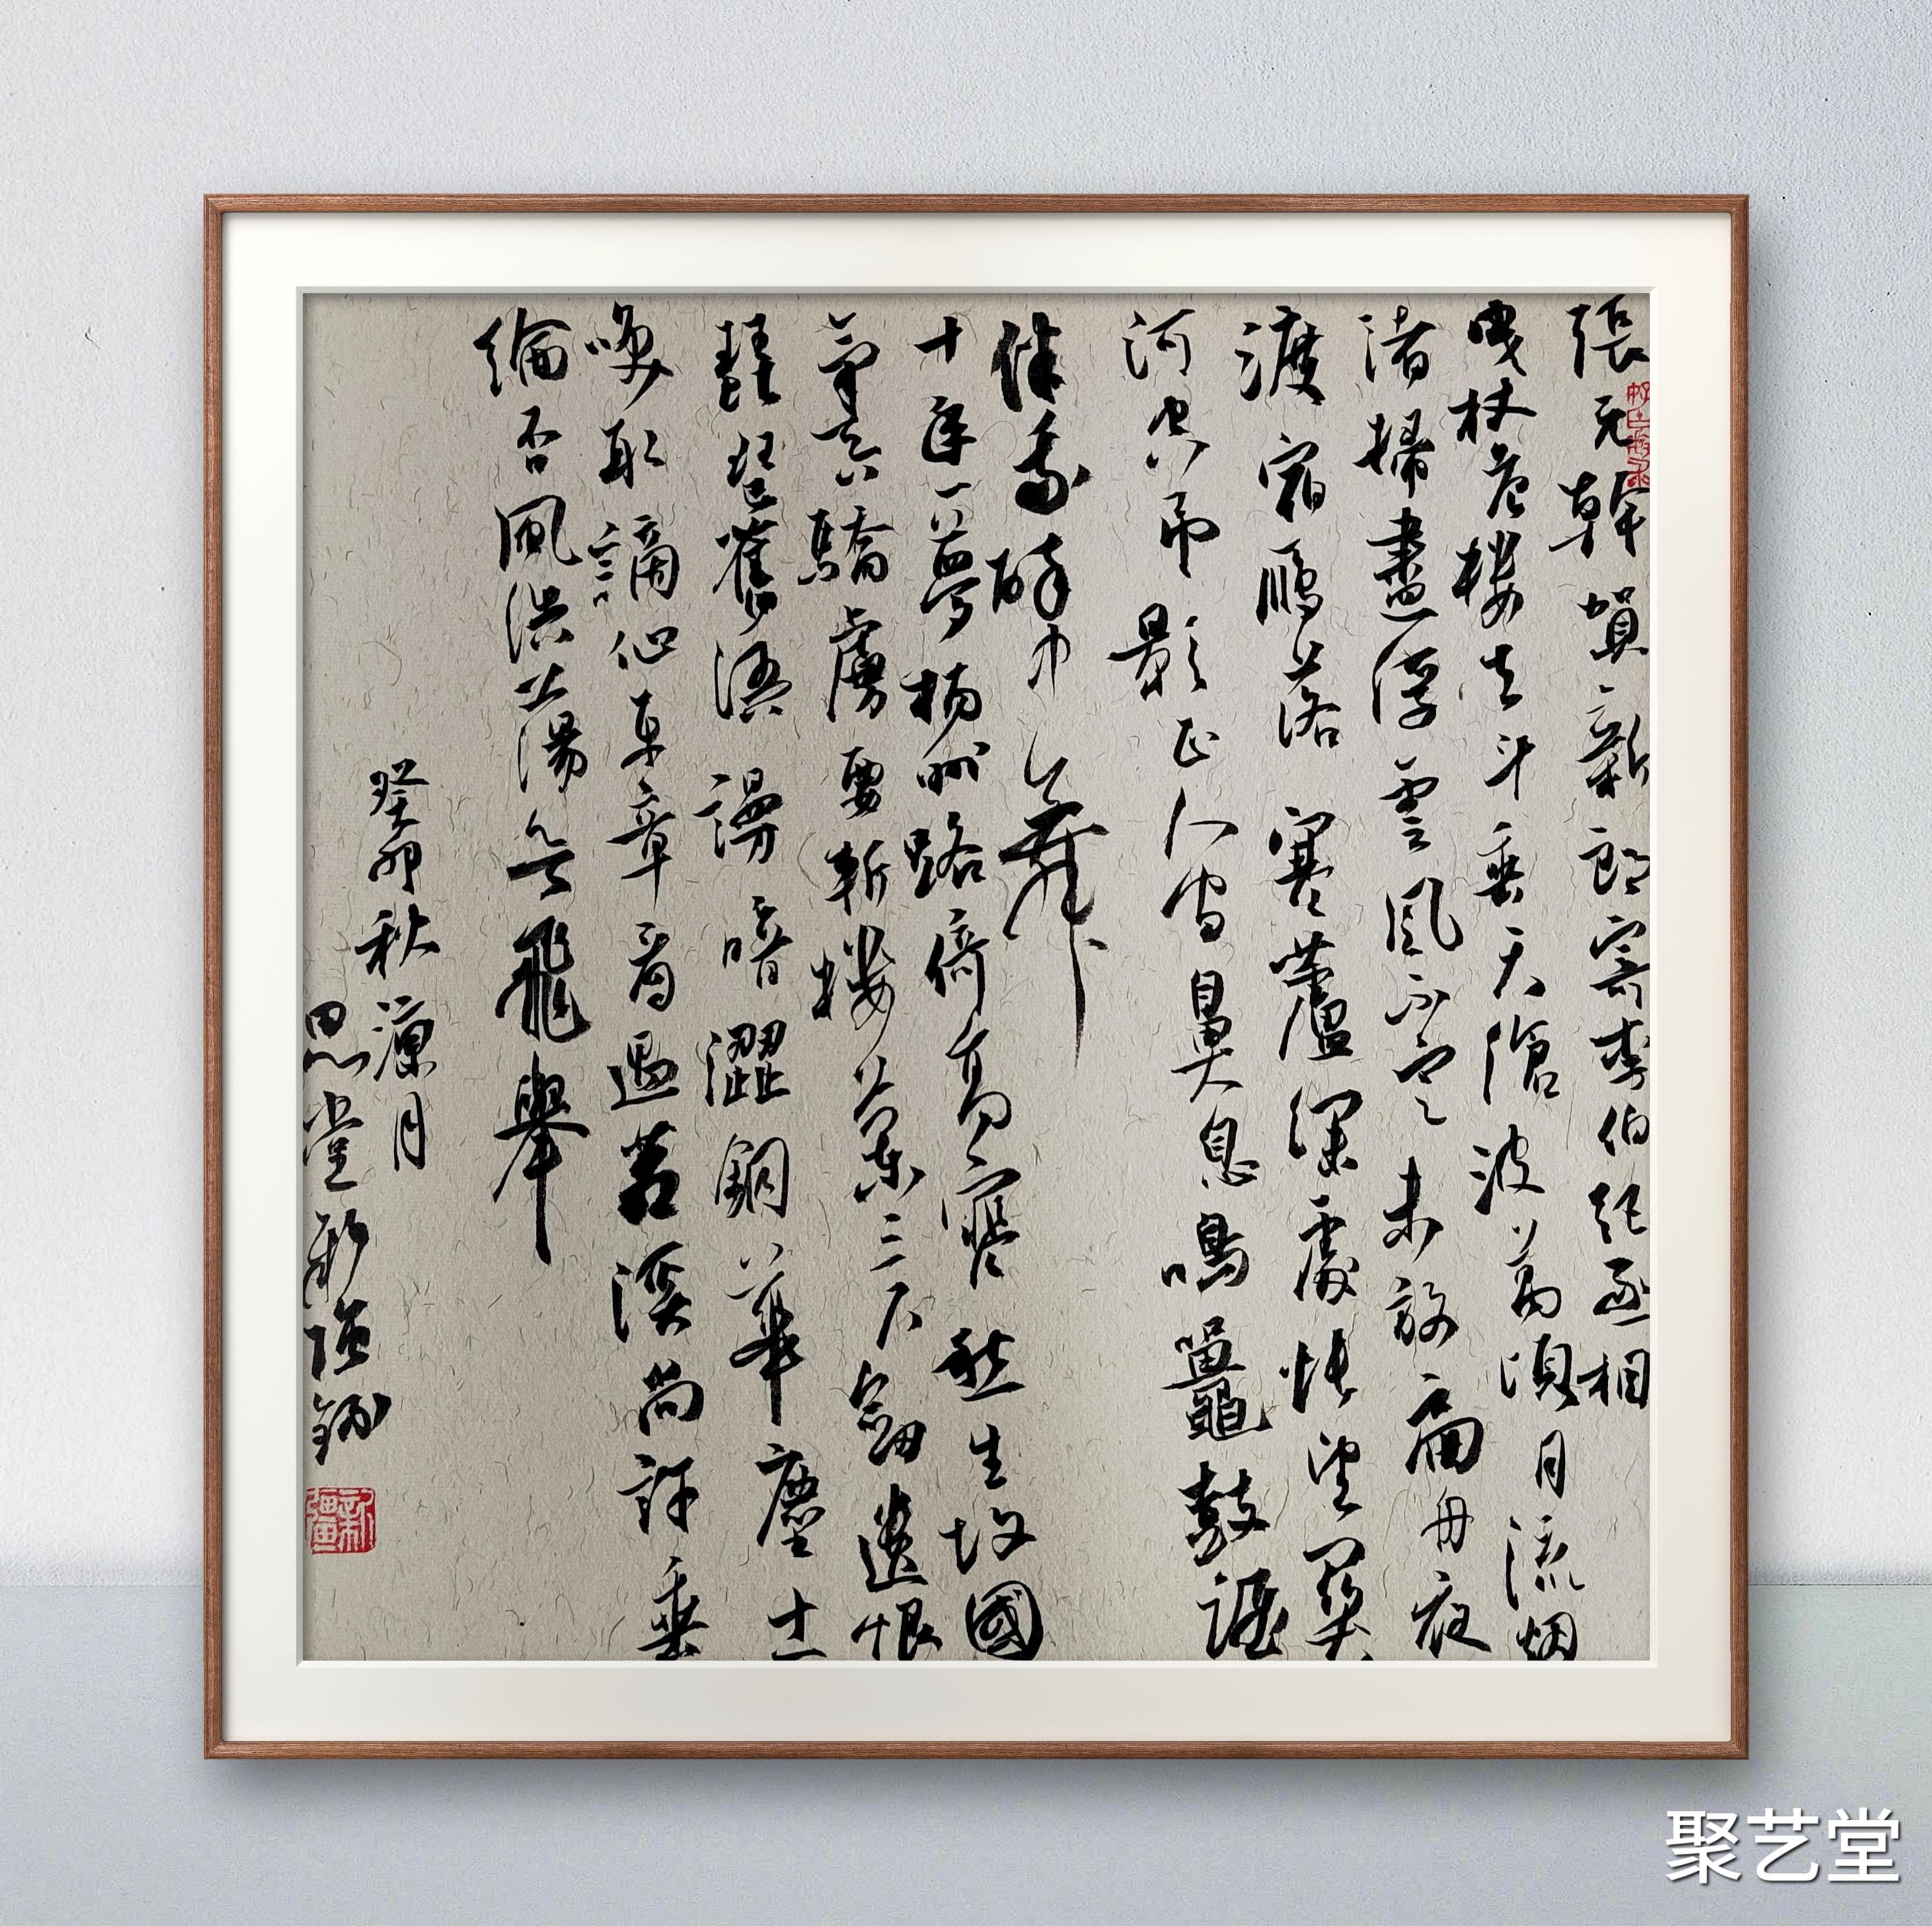 張元幹賀新郎寄李伯紀丞相
曳杖危樓去斗垂天滄波萬頃月流烟
渚掃盡浮雲風不定未放扁舟夜
渡宿鴈落寒蘆深處悵望關
河空弔影正人間鼻息鳴鼉鼓誰
伴我醉中舞
十年一夢楊州路倚高寒愁生故國
氣吞驕虜要斬樓蘭三尺劍遺恨
琵琶舊語謾暗澀銅華塵土
喚取謫仙平章看過苕溪尚許垂
綸否風浩蕩欲飛舉
癸卯秋涼月
思堂新強
聚艺堂